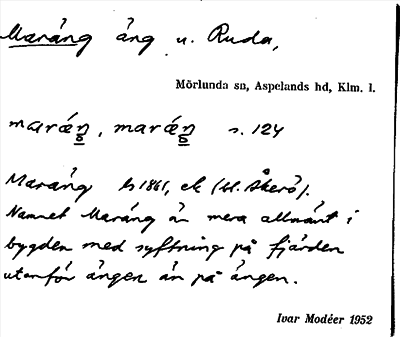 Maräng äng u. Ruda,
Mörlunda sn, Aspelands hd, Klm. l.
maræŋ, maræŋ s. 124
Maräng ls 1861, ek (kl. Åkerö).
Namnet Maräng är mera allmänt i
bygden med syftning på fjärden
utanför ängen än på ängen.
Ivar Modéer 1952